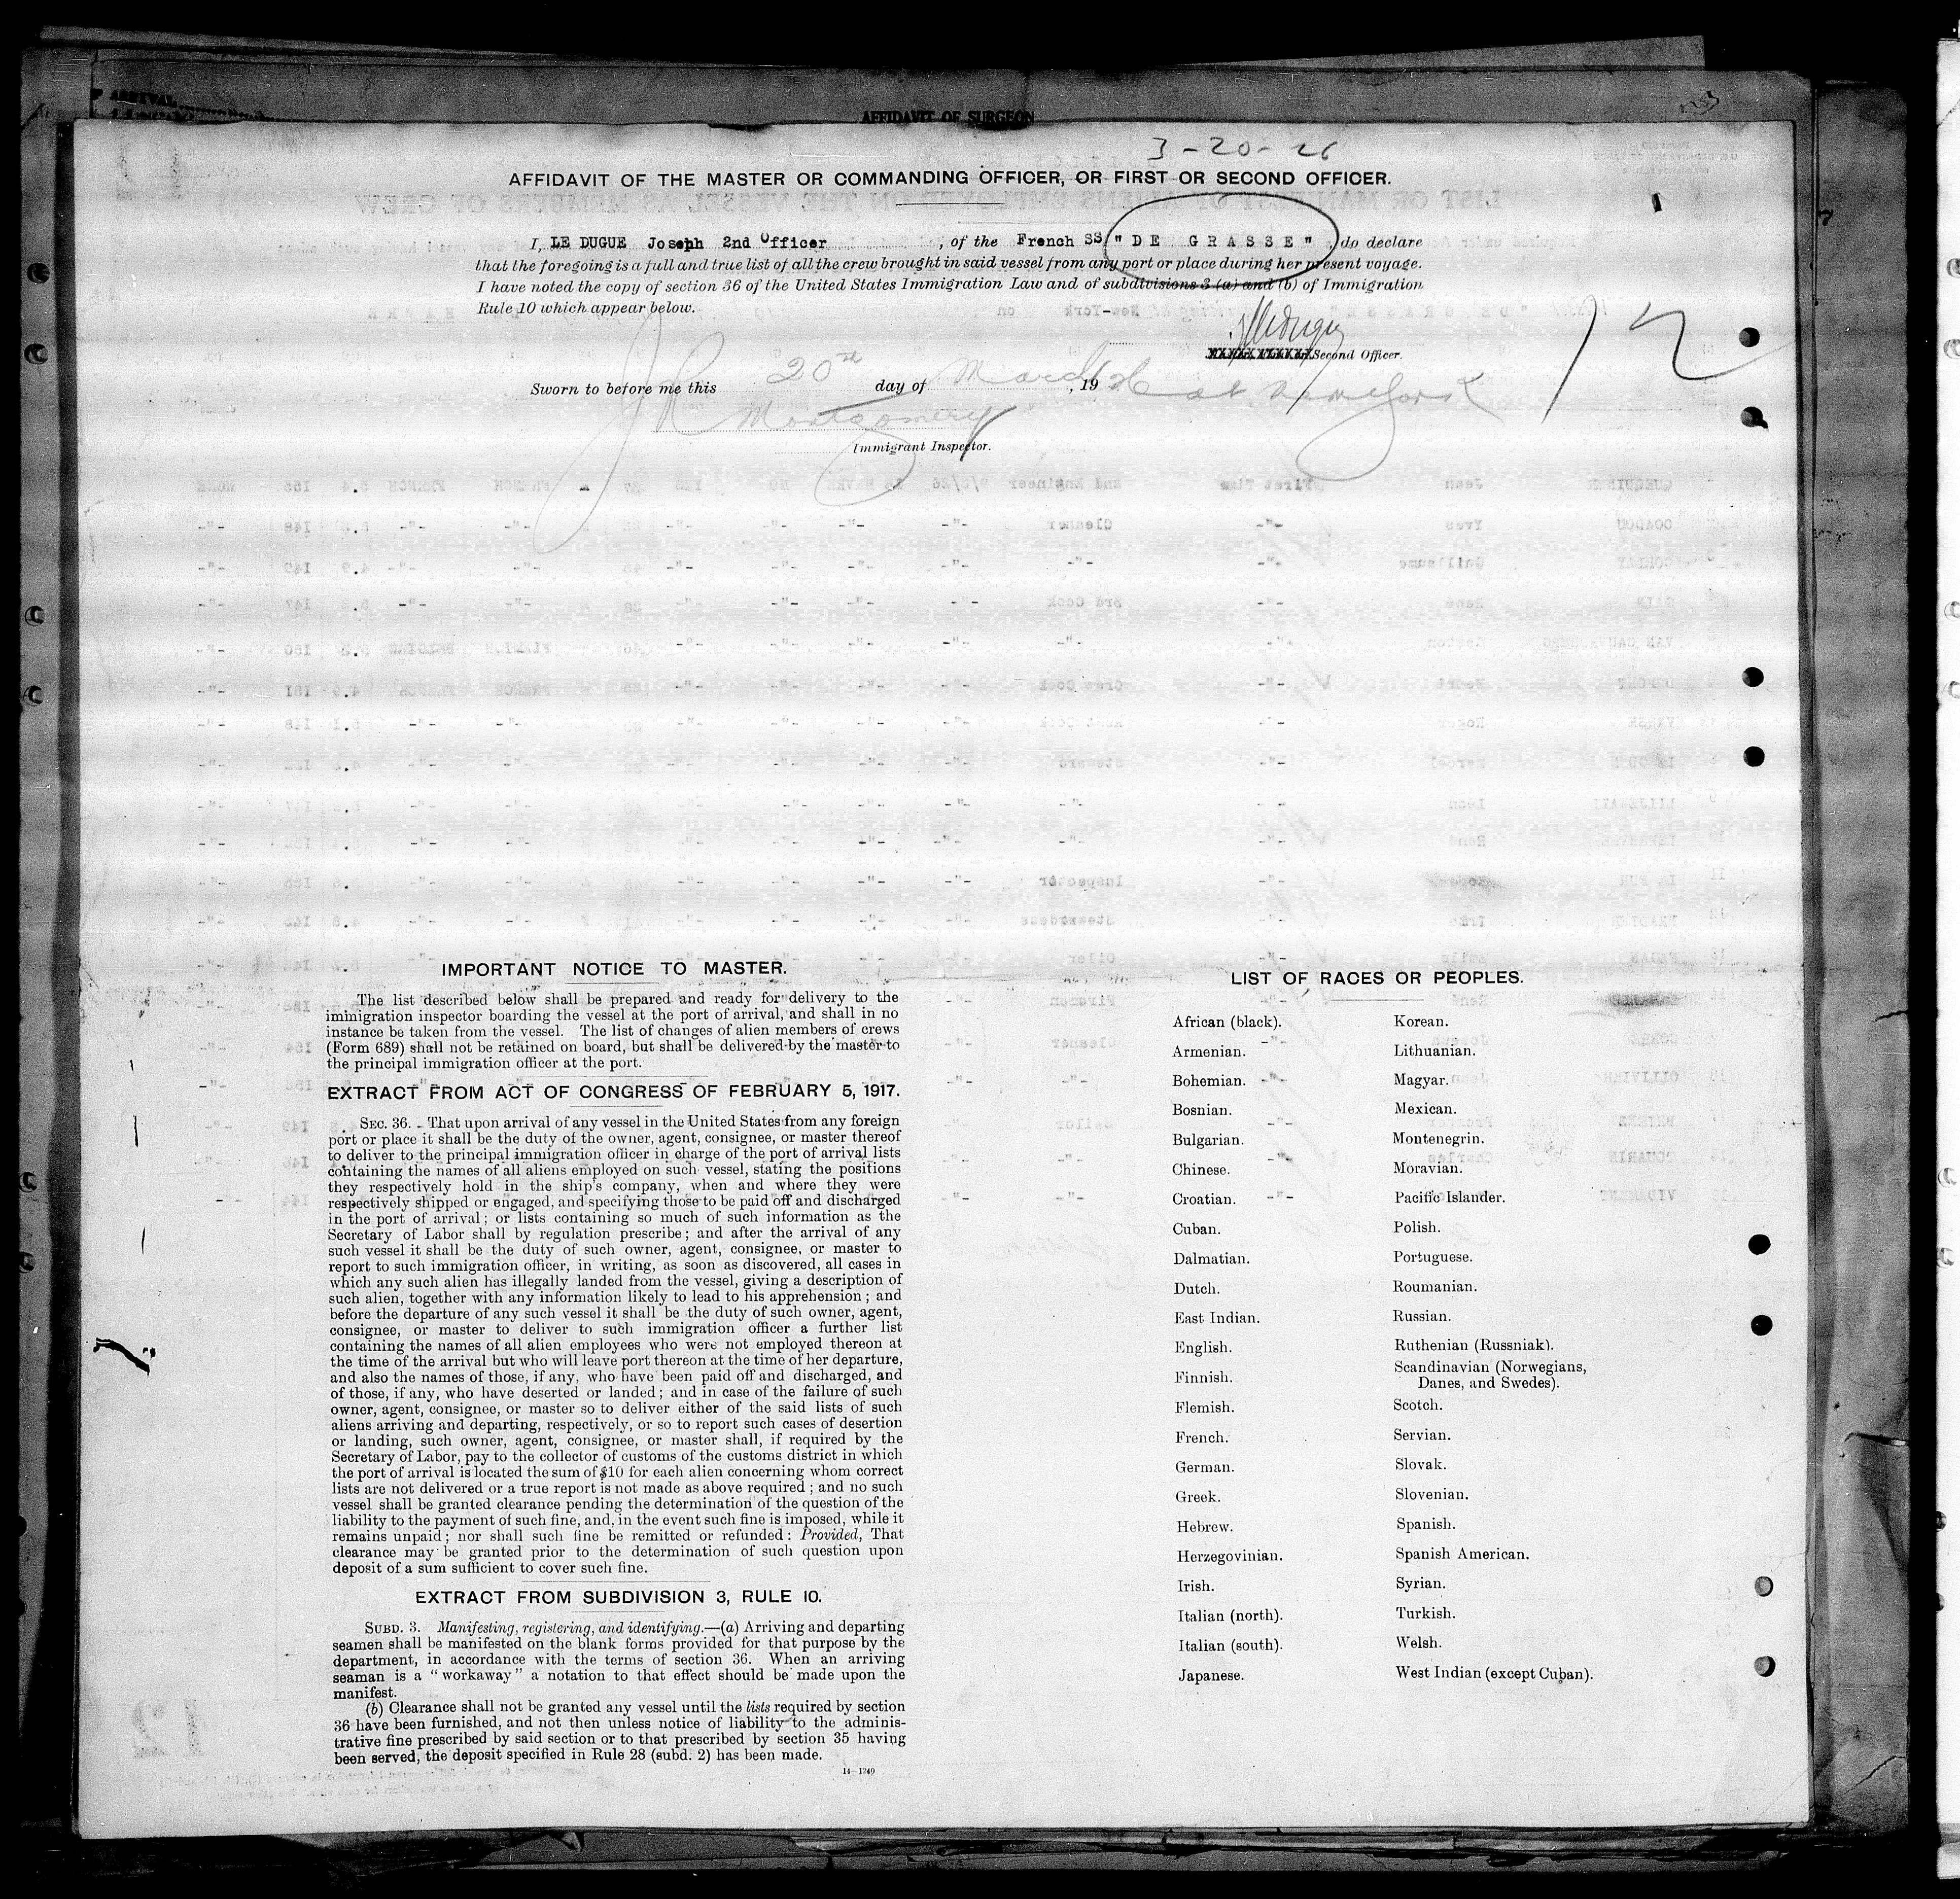 AFFIDAVIT OF SURGEON
3-20-26
AFFIDAVIT OF THE MASTER OR COMMANDING OFFICER, OR FIRST OR SECOND OFFICER.
I, LE DUGUE Joseph 2nd Officer, of the French SS "DE GRASSE", do declare
that the foregoing is a full and true list of all the crew brought in said vessel from any port or place during her present voyage.
I have noted the copy of section 36 of the United States Immigration Law and of subdivisions 3 (a) and (b) of Immigration
Rule 10 which appear below.
Second Officer.
Sworn to before me this 20th day of March, 1926 at New York
J R Montgomery
Immigrant Inspector.
12
IMPORTANT NOTICE TO MASTER.
The list described below shall be prepared and ready for delivery to the
immigration inspector boarding the vessel at the port of arrival, and shall in no
instance be taken from the vessel. The list of changes of alien members of crews
(Form 689) shall not be retained on board, but shall be delivered by the master to
the principal immigration officer at the port.
EXTRACT FROM ACT OF CONGRESS OF FEBRUARY 5, 1917.
SEC. 36. That upon arrival of any vessel in the United States from any foreign
port or place it shall be the duty of the owner, agent, consignee, or master thereof
to deliver to the principal immigration officer in charge of the port of arrival lists
containing the names of all aliens employed on such vessel, stating the positions
they respectively hold in the ship's company, when and where they were
respectively shipped or engaged, and specifying those to be paid off and discharged
in the port of arrival; or lists containing so much of such information as the
Secretary of Labor shall by regulation prescribe; and after the arrival of any
such vessel it shall be the duty of such owner, agent, consignee, or master to
report to such immigration officer, in writing, as soon as discovered, all cases in
which any such alien has illegally landed from the vessel, giving a description of
such alien, together with any information likely to lead to his apprehension; and
before the departure of any such vessel it shall be the duty of such owner, agent,
consignee, or master to deliver to such immigration officer a further list
containing the names of all alien employees who were not employed thereon at
the time of the arrival but who will leave port thereon at the time of her departure,
and also the names of those, if any, who have been paid off and discharged, and
of those, if any, who have deserted or landed; and in case of the failure of such
owner, agent, consignee, or master so to deliver either of the said lists of such
aliens arriving and departing, respectively, or so to report such cases of desertion
or landing, such owner, agent, consignee, or master shall, if required by the
Secretary of Labor, pay to the collector of customs of the customs district in which
the port of arrival is located the sum of $10 for each alien concerning whom correct
lists are not delivered or a true report is not made as above required; and no such
vessel shall be granted clearance pending the determination of the question of the
liability to the payment of such fine, and, in the event such fine is imposed, while it
remains unpaid; nor shall such fine be remitted or refunded: Provided, That
clearance may be granted prior to the determination of such question upon
deposit of a sum sufficient to cover such fine.
EXTRACT FROM SUBDIVISION 3, RULE 10.
SUBD. 3. Manifesting, registering, and identifying.—(a) Arriving and departing
seamen shall be manifested on the blank forms provided for that purpose by the
department, in accordance with the terms of section 36. When an arriving
seaman is a "workaway" a notation to that effect should be made upon the
manifest.
(b) Clearance shall not be granted any vessel until the lists required by section
36 have been furnished, and not then unless notice of liability to the adminis-
trative fine prescribed by said section or to that prescribed by section 35 having
been served, the deposit specified in Rule 28 (subd. 2) has been made.
14—1240
LIST OF RACES OR PEOPLES.
African (black).
Armenian.
Bohemian.
Bosnian.
Bulgarian.
Chinese.
Croatian.
Cuban.
Dalmatian.
Dutch.
East Indian.
English.
Finnish.
Flemish.
French.
German.
Greek.
Hebrew.
Herzegovinian.
Irish.
Italian (north).
Italian (south).
Japanese.
Korean.
Lithuanian.
Magyar.
Mexican.
Montenegrin.
Moravian.
Pacific Islander.
Polish.
Portuguese.
Roumanian.
Russian.
Ruthenian (Russniak).
Scandinavian (Norwegians,
Danes, and Swedes).
Scotch.
Servian.
Slovak.
Slovenian.
Spanish.
Spanish American.
Syrian.
Turkish.
Welsh.
West Indian (except Cuban).